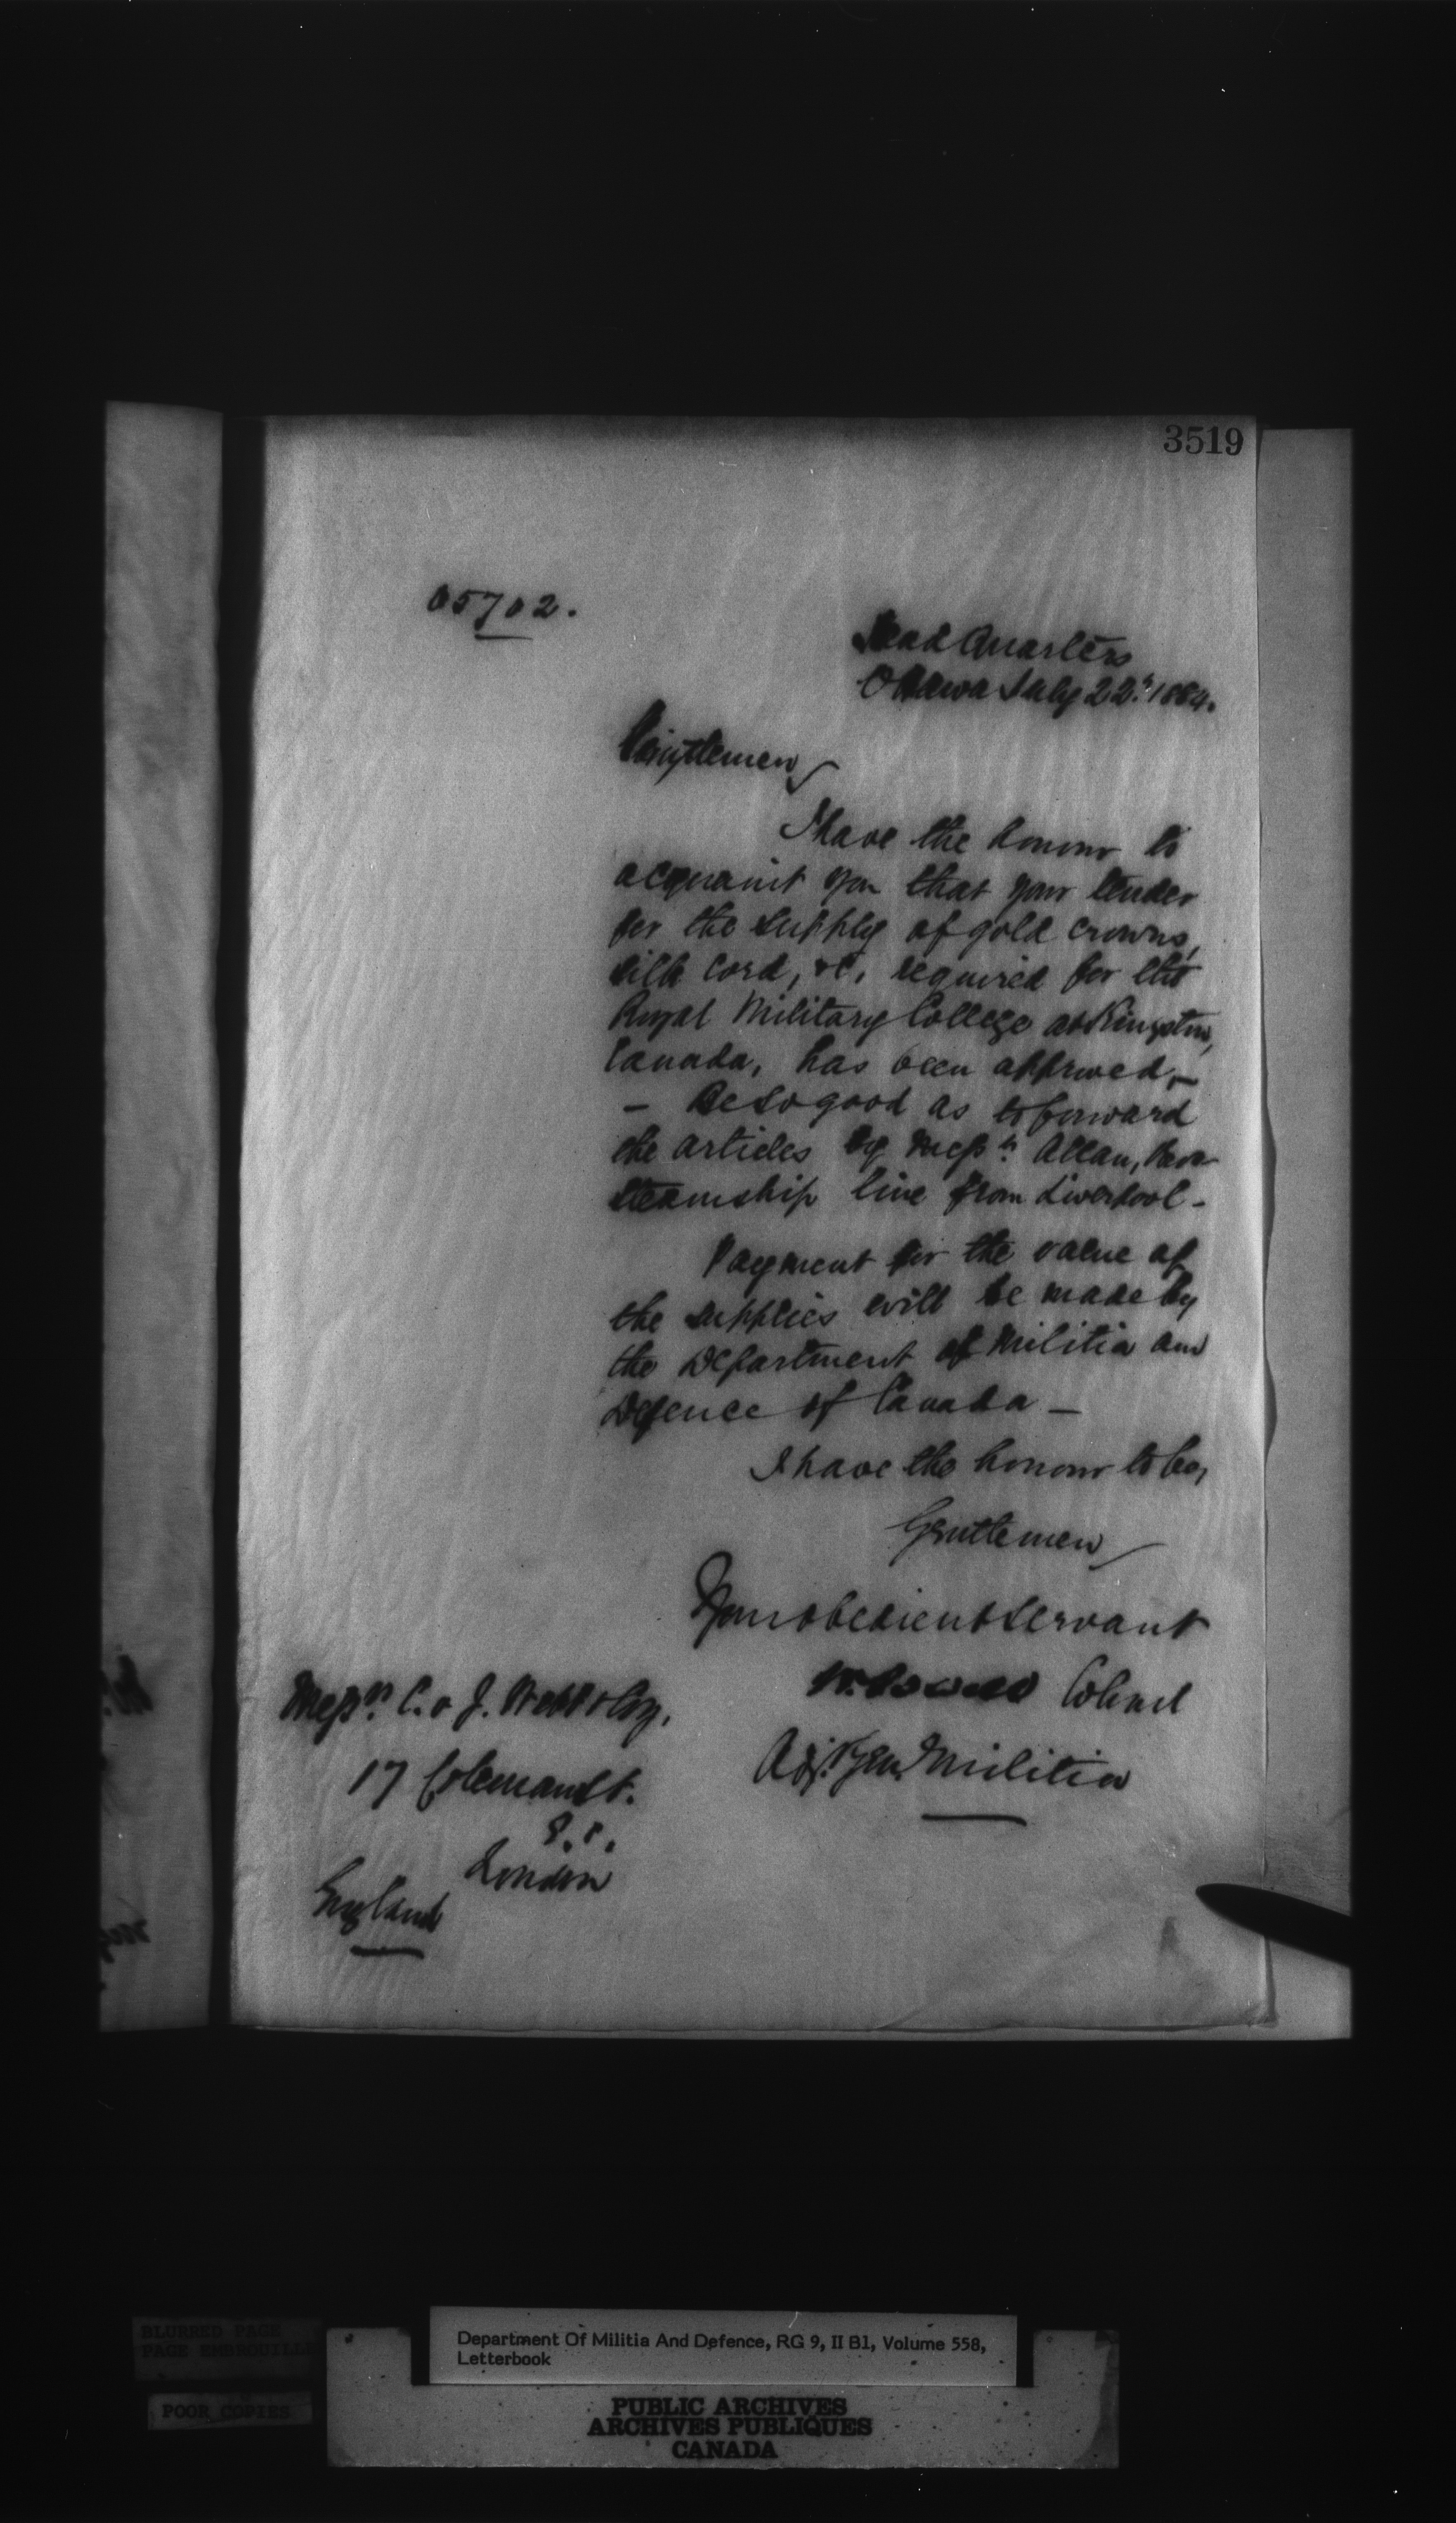 3519
05702.
Head Quarters
Ottawa July 22d 1884.
Gentlemen
I have the honour to
acquaint you that your tender
for the supply of gold crowns,
silk cord, &c, required for the
Royal Military College at Kingston,
Canada, has been approved,—
— Be so good as to forward
the articles by Messrs. Allan,
steamship line from Liverpool -
Payment for the value of
the supplies will be made by
the Department of Militia and
Defence of Canada —
I have the honour to be,
Gentlemen
Your obedient servant
W. Powell Colonel
Adjt. Gen. Militia
Messrs. C. & J. Webb & Coy,
17 Coleman St.
E.C.
London
England
BLURRED PAGE
PAGE EMBROUILLE
POOR COPIES
Department Of Militia And Defence, RG 9, II B1, Volume 558,
Letterbook
PUBLIC ARCHIVES
ARCHIVES PUBLIQUES
CANADA